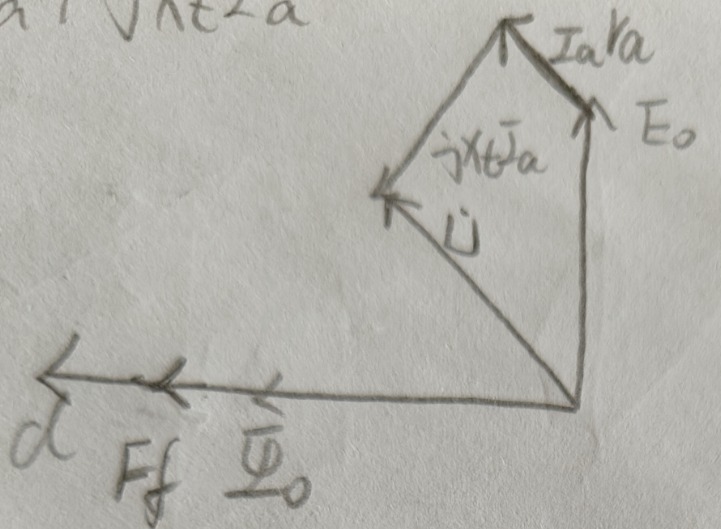 a + jXtİa
Iara
E₀
jXtİa
U̇
d
Ff
Φ̄₀